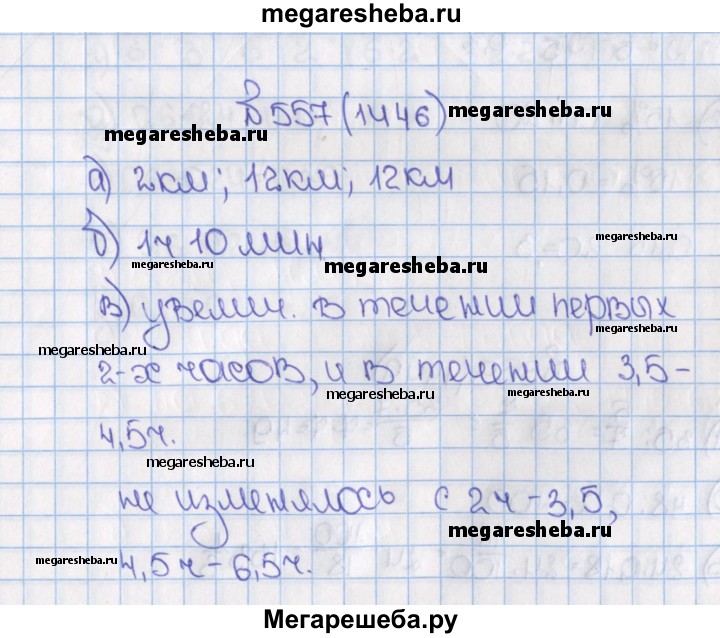 megaresheba.ru
№557 (1446) megaresheba.ru
megaresheba.ru
а) 2км; 12км; 12км
б) 1ч 10 мин
megaresheba.ru
megaresheba.ru
megaresheba.ru
в) увелич. в течении первых
megaresheba.ru
megaresheba.ru
2-х часов, и в течении 3,5-
megaresheba.ru
megaresheba.ru
4,5ч.
megaresheba.ru
не изменялось с 2ч-3,5,
megaresheba.ru
megaresheba.ru
4,5ч-6,5ч.
Мегарешеба.ру